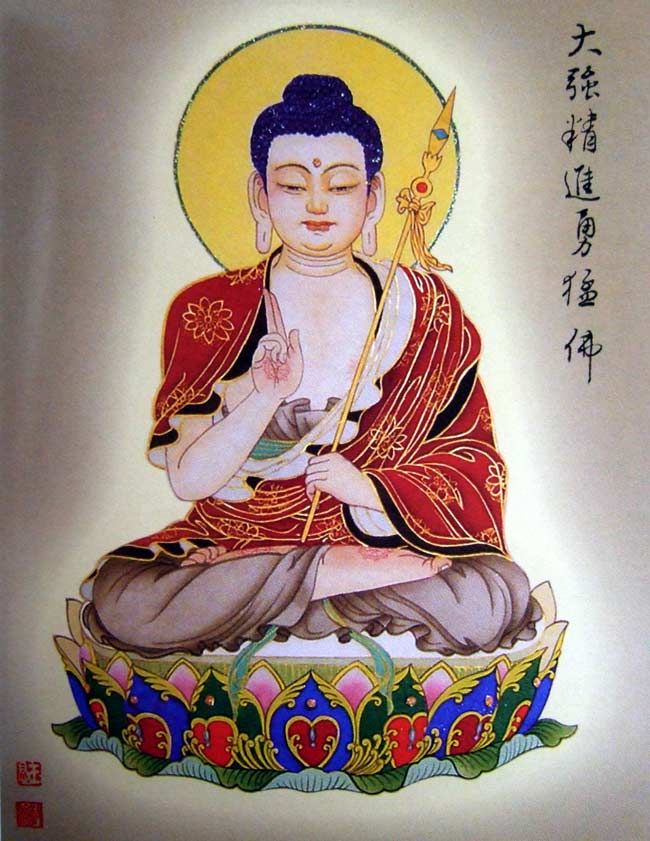 大強精進勇猛佛